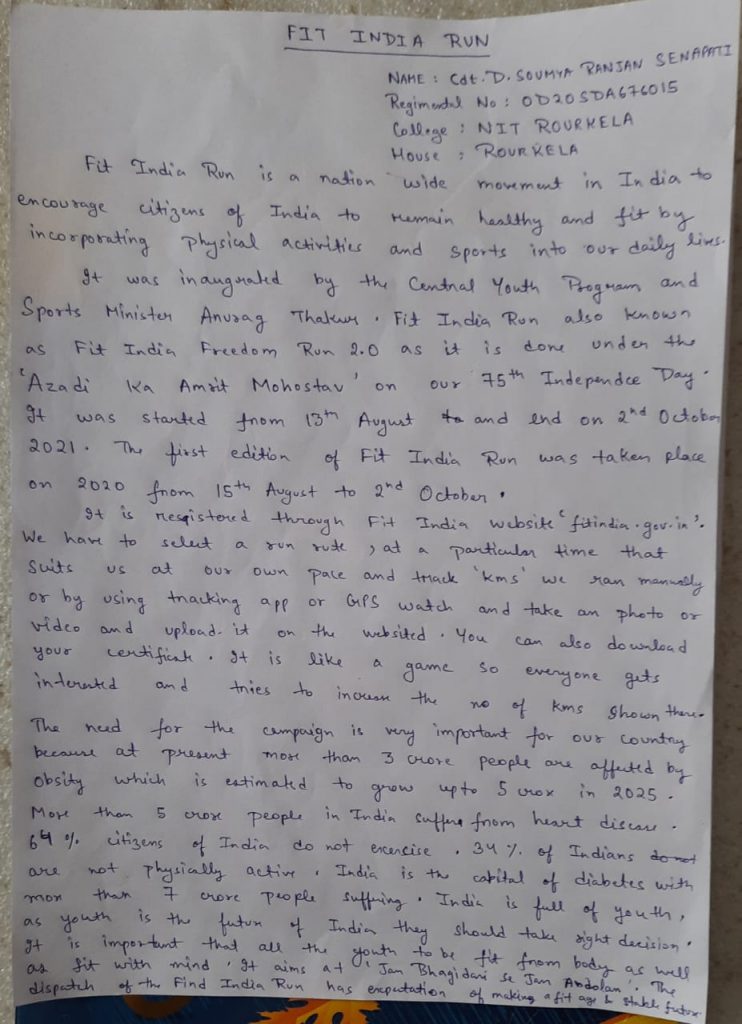 FIT INDIA RUN
NAME : Cdt. D. SOUMYA RANJAN SENAPATI
Regimental No : OD20SDA676015
College : NIT ROURKELA
House : ROURKELA
Fit India Run is a nation wide movement in India to
encourage citizens of India to remain healthy and fit by
incorporating physical activities and sports into our daily lives.
It was inaugrated by the Central Youth Program and
Sports Minister Anurag Thakur. Fit India Run also known
as Fit India Freedom Run 2.0 as it is done under the
'Azadi Ka Amrit Mohostav' on our 75th Independce Day.
It was started from 13th August and end on 2nd October
2021. The first edition of Fit India Run was taken place
on 2020 from 15th August to 2nd October.
It is resgistered through Fit India website 'fitindia.gov.in'.
We have to select a run rute, at a particular time that
suits us at our own pace and track 'kms' we ran manually
or by using tracking app or GPS watch and take an photo or
video and upload it on the websited. You can also download
your certificate. It is like a game so everyone gets
interested and tries to increase the no of kms shown there.
The need for the campaign is very important for our country
because at present more than 3 crore people are affected by
obsity which is estimated to grow upto 5 crore in 2025.
More than 5 crore people in India suffers from heart disease.
64 % citizens of India do not excersise. 34 % of Indians do not
are not physically active. India is the capital of diabetes with
more than 7 crore people suffering. India is full of youth,
as youth is the future of India they should take right decision.
It is important that all the youth to be fit from body as well
as fit with mind. It aims at 'Jan Bhagidari se Jan Andolan'. The
dispatch of the Find India Run has expectation of making a fit age & stable future